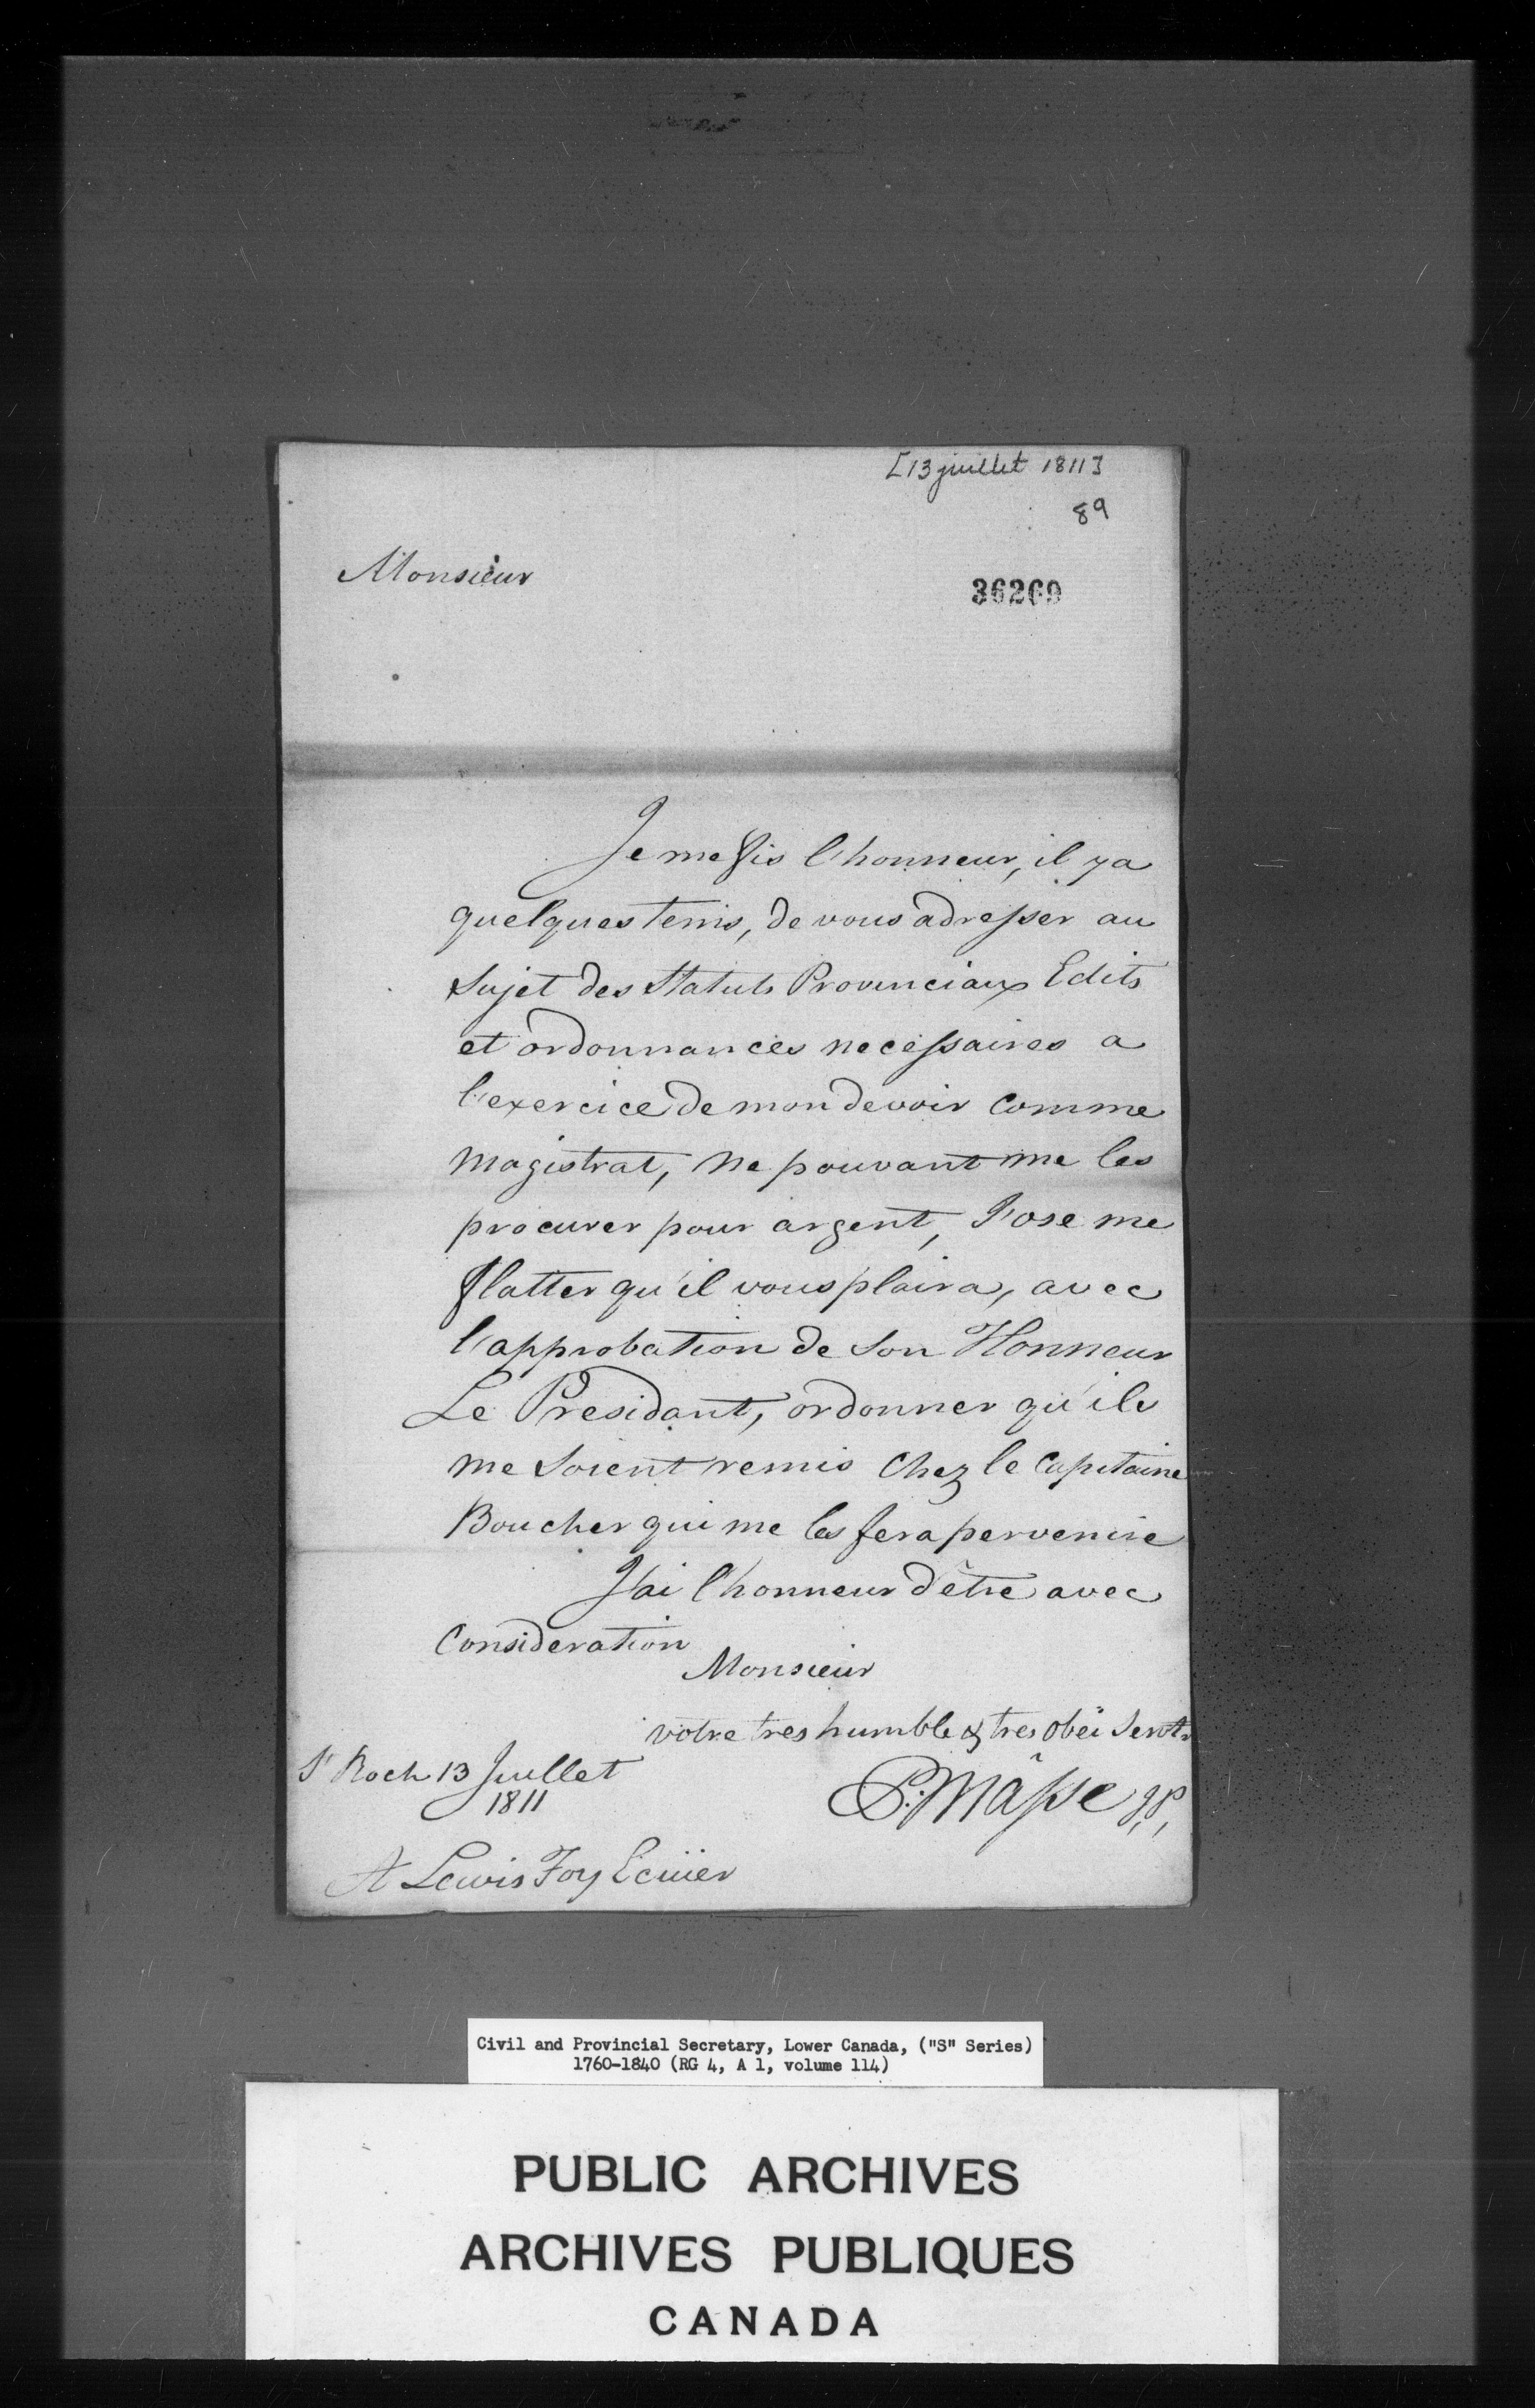 [13 juillet 1811]
89
Monsieur
36269
Je me fis l'honneur, il ya
quelques tems, de vous adresser au
Sujet des Statuts Provinciaux Edits
et ordonnances necessaires a
l'exercice de mon devoir comme
Magistrat, ne pouvant me les
procurer pour argent, J'ose me
flatter qu'il vous plaira, avec
l'approbation de Son Honneur
Le Présidant, ordonner qu'ils
me Soient remis Chez le Capitaine
Boucher qui me les fera pervenire
J'ai l'honneur d'être avec
Consideration
Monsieur
votre tres humble & tres obëi Servtr
St Roch 13 Juillet
1811
P: Mâsse J,P,
A Lewis Foy Ecüier
Civil and Provincial Secretary, Lower Canada, ("S" Series)
1760-1840 (RG 4, A 1, volume 114)
PUBLIC ARCHIVES
ARCHIVES PUBLIQUES
CANADA